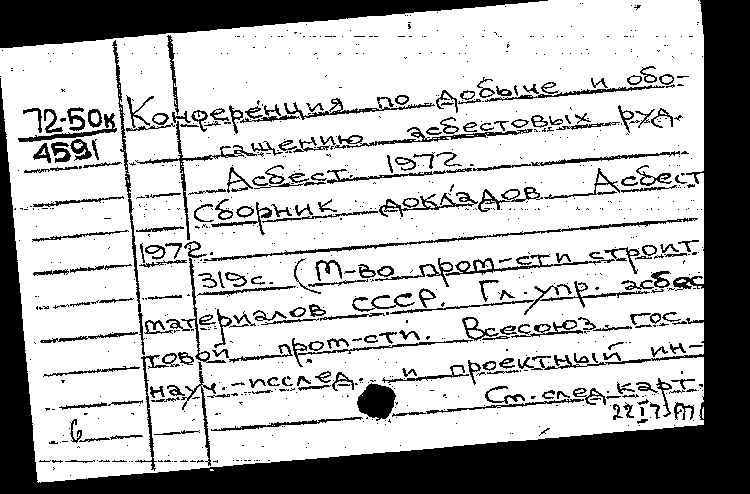 72-50к
4591
Конференция по добыче и обо-
гащению асбестовых руд.
Асбест. 1972.
Сборник докладов. Асбест
1972.
319с. (М-во пром-сти строит.
материалов СССР. Гл. упр. асбес
товой пром-сти. Всесоюз. гос.
науч.-исслед. и проектный ин-
См. след. карт.
6